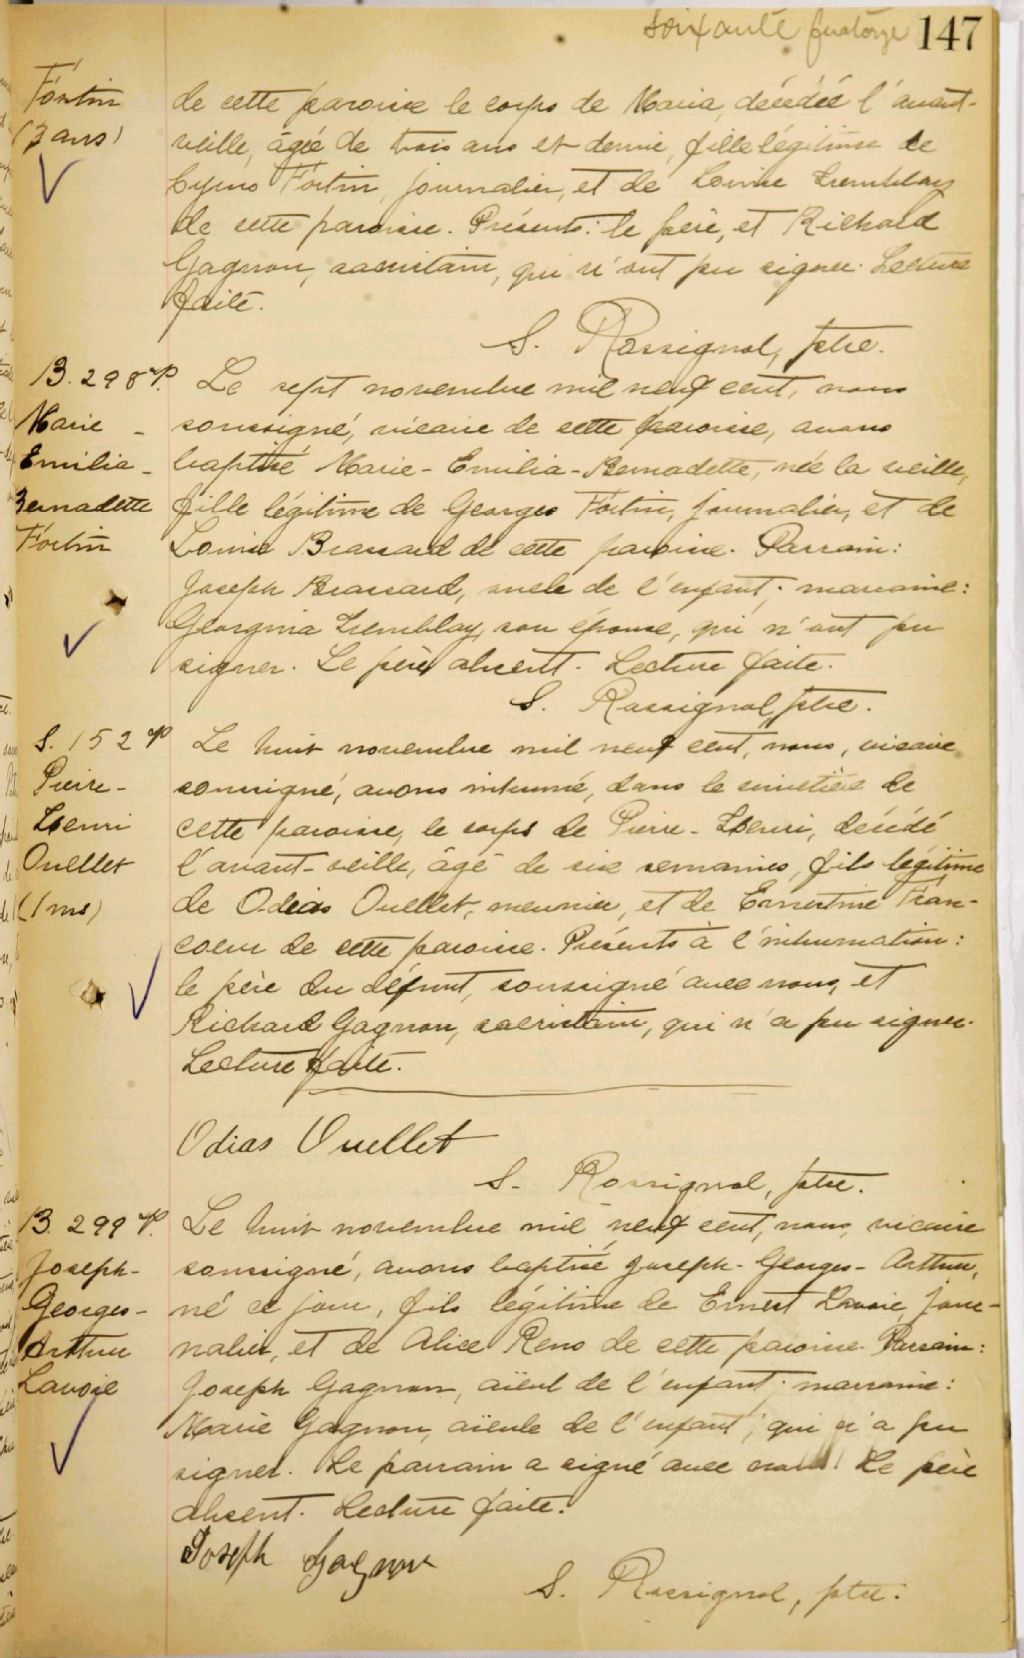 soixante quatorze 147
Fortin
(3 ans)
de cette paroisse le corps de Maria, décédée l'avant-
veille, âgée de trois ans et demie, fille légitime de
Cyrins Fortin, journalier, et de Louise Tremblay
de cette paroisse. Présents: le père, et Richard
Gagnon, sacristain, qui n'ont pu signer. Lecture
faite.
S. Rossignol, ptre.
B. 298
Marie -
Emilia -
Bernadette
Fortin
Le sept novembre mil neuf cent, nous
soussigné, vicaire de cette paroisse, avons
baptisé Marie-Emilia-Bernadette, née la veille,
fille légitime de Georges Fortin, journalier, et de
Louise Brassard de cette paroisse. Parrain:
Joseph Brassard, oncle de l'enfant; marraine:
Georgina Tremblay, son épouse, qui n'ont pu
signer. Le père absent. Lecture faite.
S. Rossignol, ptre.
S. 152
Pierre-
Henri
Ouellet
(1 ms)
Le huit novembre mil neuf cent, nous, vicaire
soussigné, avons inhumé, dans le cimetière de
cette paroisse, le corps de Pierre-Henri, décédé
l'avant-veille, âgé de six semaines, fils légitime
de Odias Ouellet, meunier, et de Ernestine Fran-
coeur de cette paroisse. Présents à l'inhumation:
le père du défunt, soussigné avec nous, et
Richard Gagnon, sacristain, qui n'a pu signer.
Lecture faite.
Odias Ouellet
S. Rossignol, ptre.
B. 299
Joseph-
Georges-
Arthur
Lavoie
Le huit novembre mil neuf cent, nous, vicaire
soussigné, avons baptisé Joseph-Georges-Arthur,
né ce jour, fils légitime de Ernest Lavoie, jour-
nalier, et de Alice Reno de cette paroisse. Parrain:
Joseph Gagnon, aïeul de l'enfant; marraine:
Marie Gagnon, aïeule de l'enfant; qui n'a pu
signer. Le parrain a signé avec nous. Le père
absent. Lecture faite.
Joseph Gagnon
S. Rossignol, ptre.